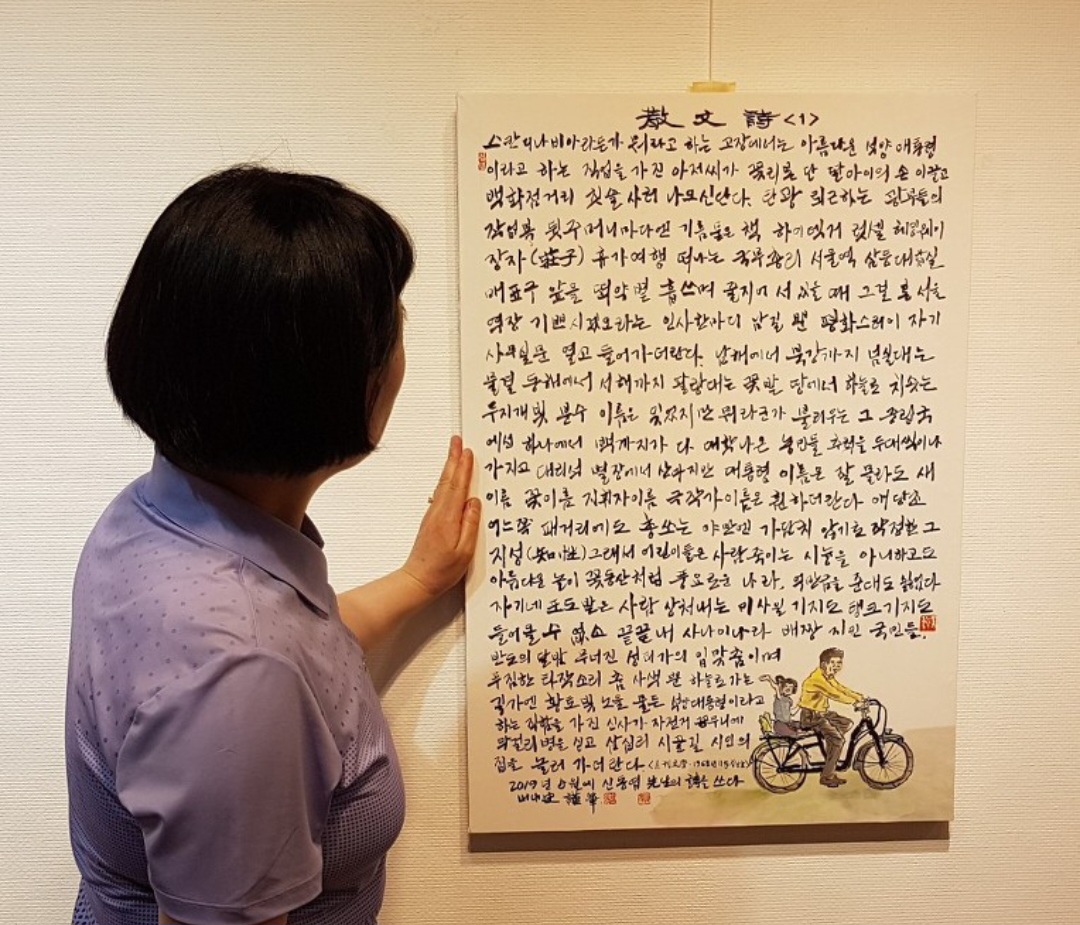 散文詩<1>
스칸디나비아라든가 뭐라고 하는 고장에서는 아름다운 석양 대통령
이라고 하는 직업을 가진 아저씨가 꽃리본 단 딸아이의 손 이끌고
백화점거리 칫솔 사러 나오신단다. 탄광 퇴근하는 광부들의
작업복 뒷주머니마다엔 기름묻은 책 하이덱거 럿셀 헤밍웨이
장자(莊子) 휴가여행 떠나는 국무총리 서울역 삼등대합실
매표구 앞을 뙤약볕 흡쓰며 줄지어 서 있을 때 그걸 본 서울
역장 기쁘시겠오라는 인사한마디 남길 뿐 평화스러이 자기
사무실문 열고 들어가더란다. 남해에서 북강까지 넘실대는
물결 동해에서 서해까지 팔랑대는 꽃밭 땅에서 하늘로 치솟는
무지개빛 분수 이름은 잊었지만 뭐라군가 불리우는 그 중립국
에선 하나에서 백까지가 다 대학 나온 농민들 추럭을 두대씩이나
가지고 대리석 별장에서 산다지만 대통령 이름은 잘 몰라도 새
이름 꽃이름 지휘자이름 극작가이름은 훤하더란다 애당초
어느쪽 패거리에도 총쏘는 야만엔 가담치 않기로 작정한 그
지성(知性) 그래서 어린이들은 사람 죽이는 시늉을 아니하고도
아름다운 놀이 꽃동산처럼 풍요로운 나라, 억만금을 준대도 싫었다
자기네 포도밭은 사람 상처내는 미사일 기지도 땡크기지도
들어올 수 없소 끝끝내 사나이나라 배짱 지킨 국민들,
반도의 달밤 무너진 성터가의 입맞춤이며
푸짐한 타작소리 춤 사색 뿐 하늘로 가는
길가엔 황토빛 노을 물든 석양대통령이라고
하는 직함을 가진 신사가 자전거 꽁무니에
막걸리병을 싣고 삼십리 시골길 시인의
집을 놀러 가더란다
2019년 6월에 신동엽 先生의 詩을 쓰다